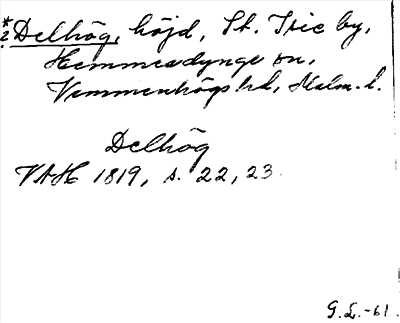 *
2 Delhög, höjd, St. Isie by,
Hemmesdynge sn,
Vemmenhögs hd, Malm. l.
Delhög
VAH 1819, s. 22, 23.
G.L.-61.